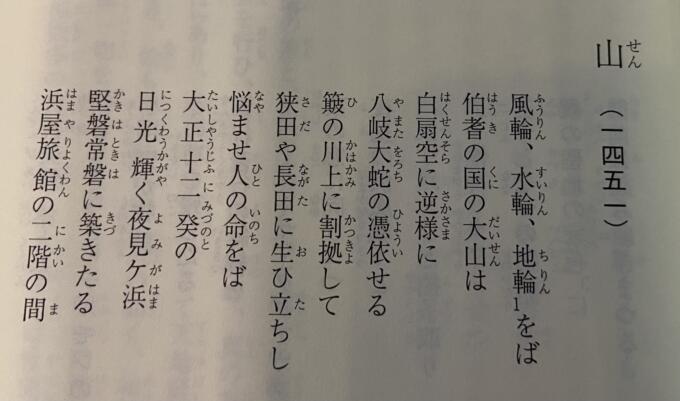 山 （一四五一）
風輪、水輪、地輪1をば
伯耆の国の大山は
白扇空に逆様に
八岐大蛇の憑依せる
簸の川上に割拠して
狭田や長田に生ひ立ちし
悩ませ人の命をば
大正十二癸の
日光輝く夜見ケ浜
堅磐常磐に築きたる
浜屋旅館の二階の間